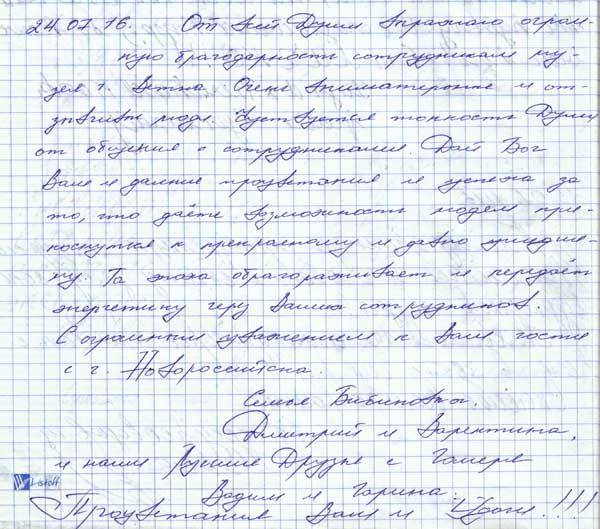 24.07.16. От всей Души выражаю огром-
ную благодарность сотрудникам му-
зея г. Очень внимательные и от-
зывчивые люди. Чувствуется тонкость Души
от общения с сотрудниками. Дай Бог
Вам и дальше процветания и успеха за
то, что даёте возможность людям при-
коснуться к прекрасному и давно ушедше-
му. Та эпоха облагораживает и передаёт
энергетику через Ваших сотрудников.
С огромным уважением к Вам гости
с г. Новороссийска.
Семья
Дмитрий и Валентина,
и наши Лучшие Друзья с Гомеля
Вадим и Галина.
Процветания Вам и !!!
Listoff